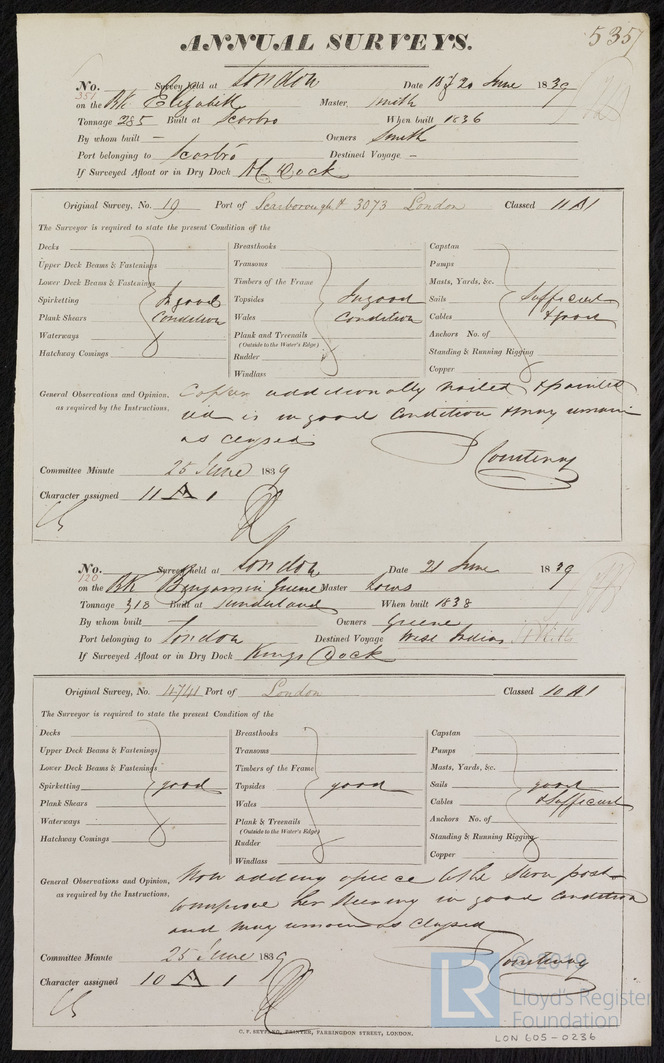 ANNUAL SURVEYS.
535
No. 351 Survey held at London Date 20 June 1839
on the Bk Elizabeth Master, Smith
Tonnage 285 Built at Scarbro When built 1836
By whom built — Owners Smith
Port belonging to Scarbro Destined Voyage —
If Surveyed Afloat or in Dry Dock Dock
Original Survey, No. 19 Port of Scarborough & 3073 London Classed 11 A 1
The Surveyor is required to state the present Condition of the
Decks Breasthooks Capstan
Upper Deck Beams & Fastenings Transoms Pumps
Lower Deck Beams & Fastenings Timbers of the Frame Masts, Yards, &c.
Spirketting In good Topsides In good Sails Sufficient
Plank Shears Condition Wales Condition Cables & good
Waterways Plank and Treenails Anchors No. of
(Outside to the Water's Edge)
Hatchway Comings Rudder Standing & Running Rigging
Windlass Copper
General Observations and Opinion, Copper additionally nailed & painted
as required by the Instructions. is in good Condition & may remain
as classed
Courtenay
Committee Minute 25 June 1839
Character assigned 11 A 1
No. 120 Survey held at London Date 21 June 1839
on the Bk Benjamin Greene Master
Tonnage 318 Built at Sunderland When built 1838
By whom built Owners Greene
Port belonging to London Destined Voyage West Indies
If Surveyed Afloat or in Dry Dock Kings Dock
Original Survey, No. 4741 Port of London Classed 10 A 1
The Surveyor is required to state the present Condition of the
Decks Breasthooks Capstan
Upper Deck Beams & Fastenings Transoms Pumps
Lower Deck Beams & Fastenings Timbers of the Frame Masts, Yards, &c.
Spirketting good Topsides good Sails good
Plank Shears Wales Cables & Sufficient
Waterways Plank & Treenails Anchors No. of
(Outside to the Water's Edge)
Hatchway Comings Rudder Standing & Running Rigging
Windlass Copper
General Observations and Opinion, Now adding a piece to the Stern post
as required by the Instructions. to improve her Steering in good Condition
and may remain as classed
Courtenay
Committee Minute 25 June 1839
Character assigned 10 A 1
C. F. SEYFANG, PRINTER, FARRINGDON STREET, LONDON.
LR © 2019
Lloyd's Register
Foundation
LON 605-0236